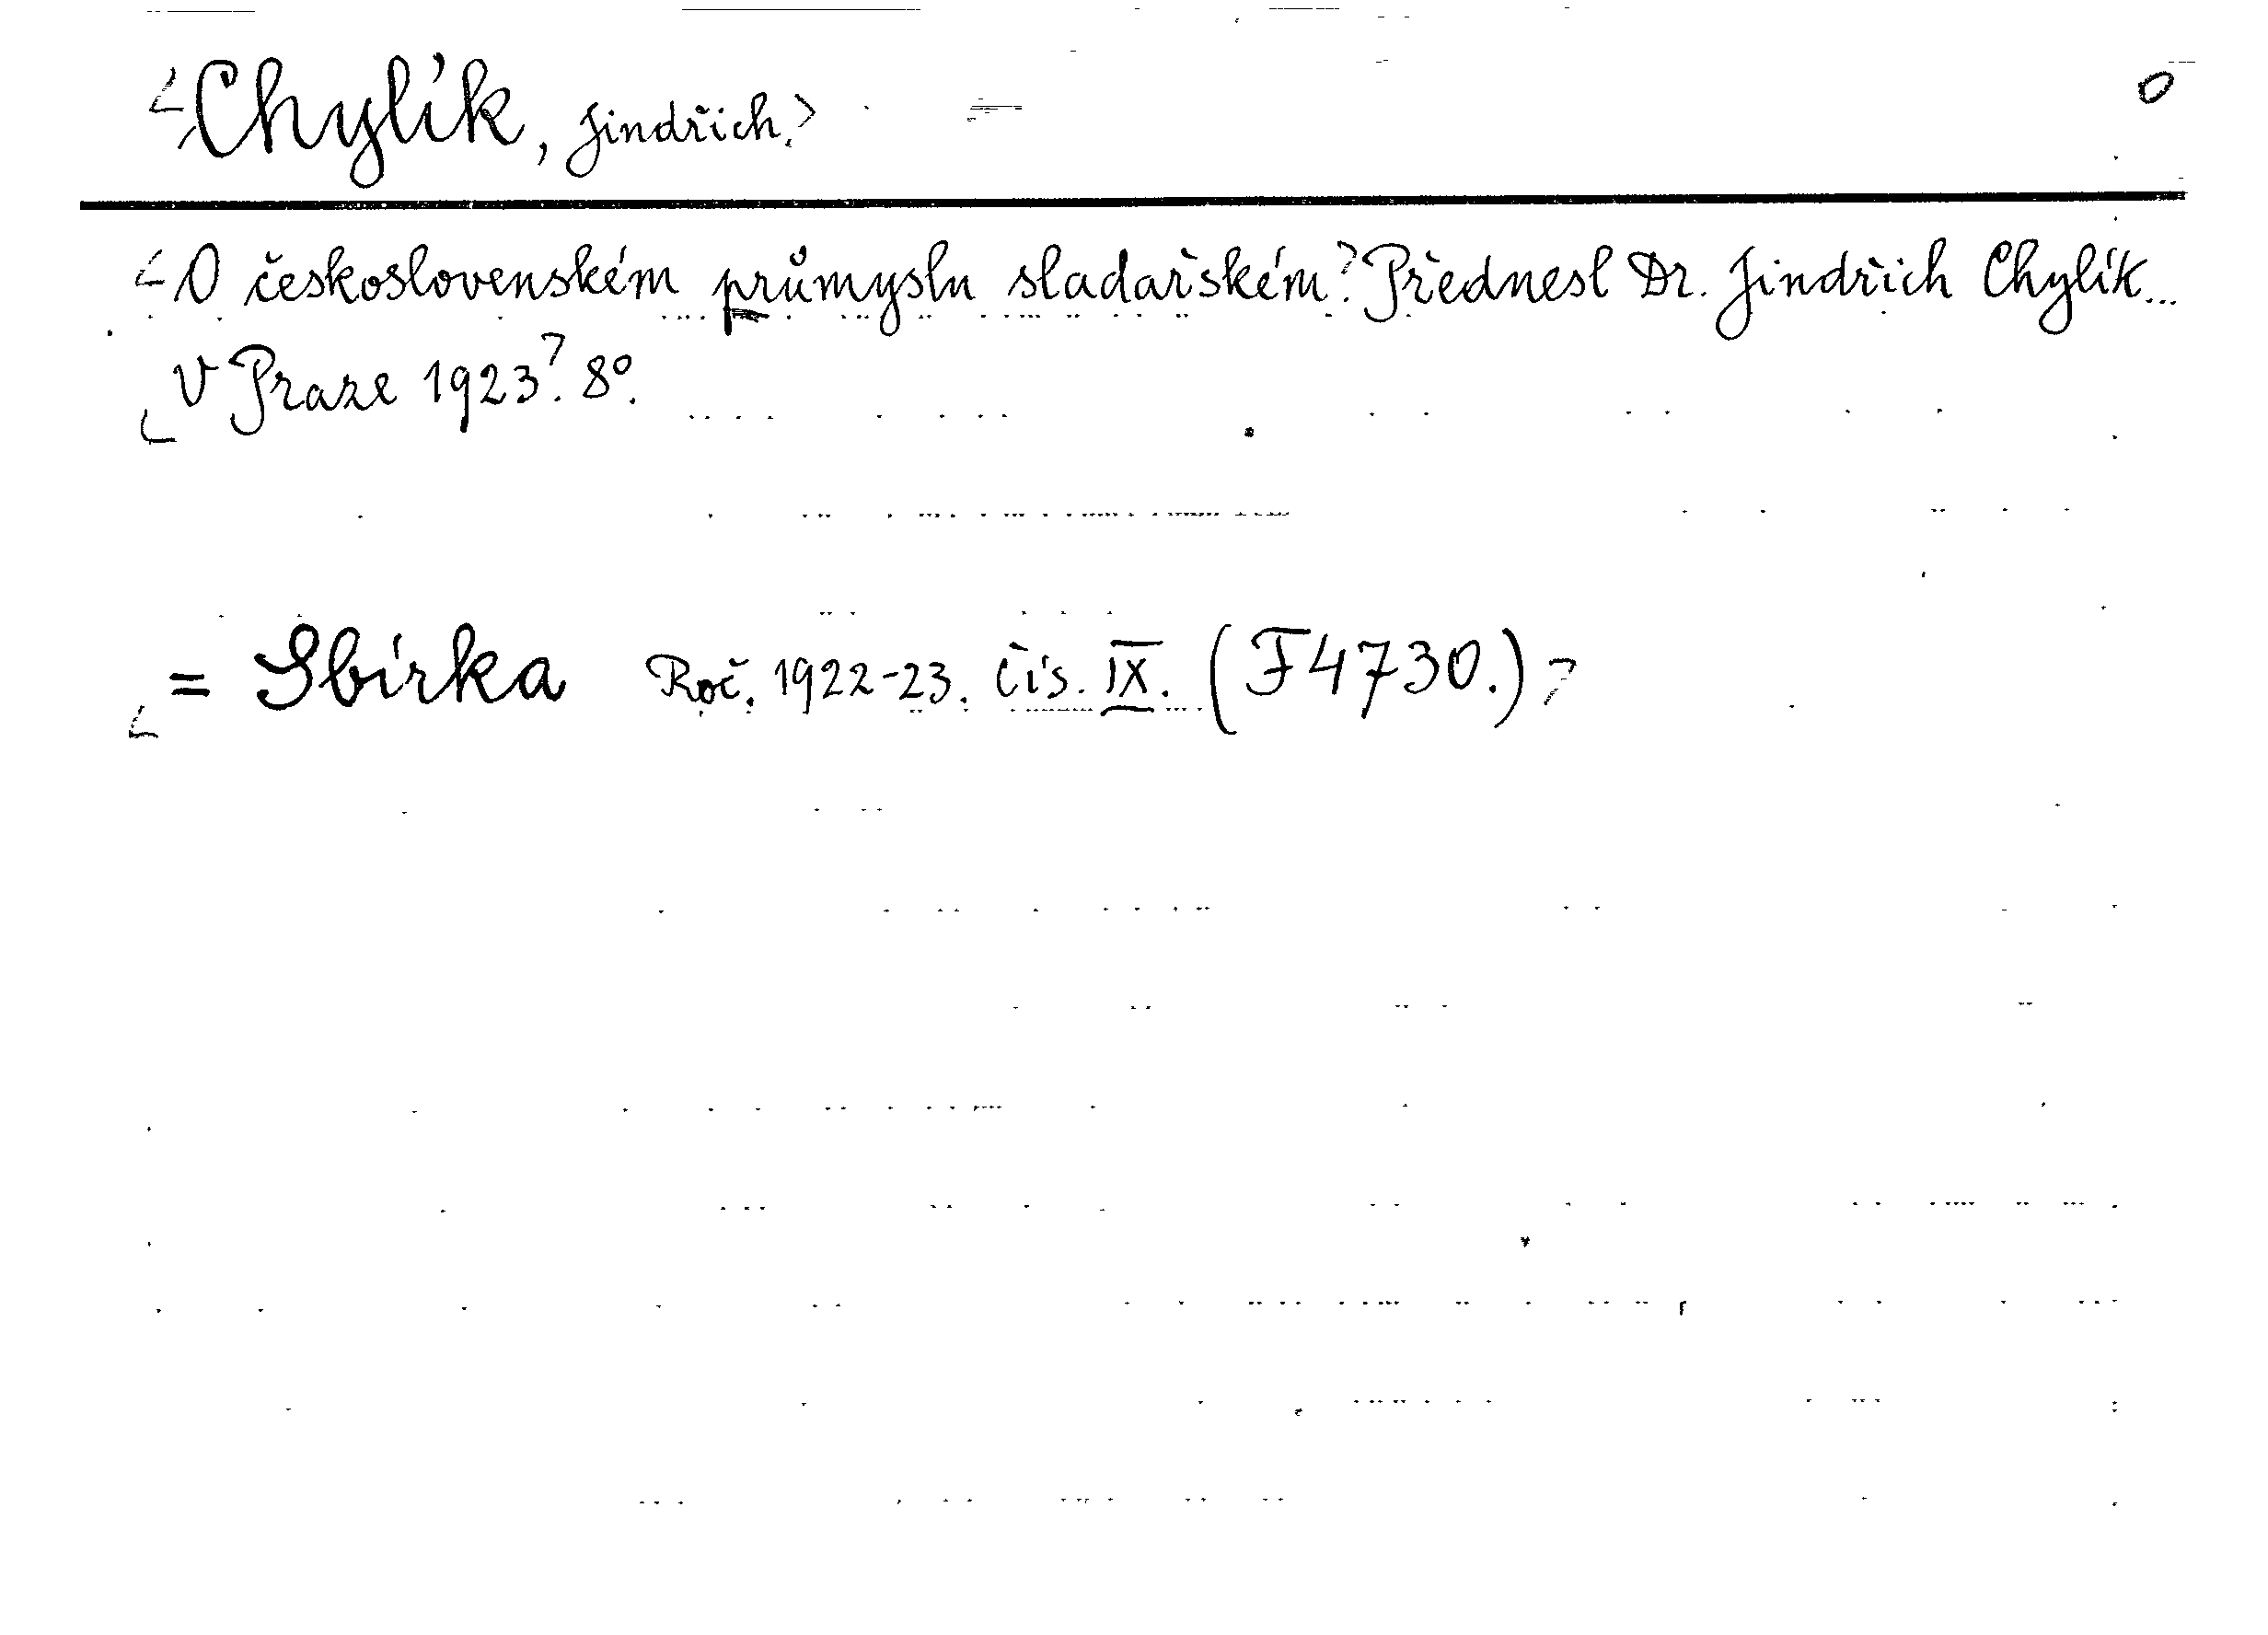 <Chylík, Jindřich.> O
<O československém průmyslu sladařském? Přednesl Dr. Jindřich Chylík...
V Praze 1923? 8°.
= Sbírka Roč. 1922-23. Čís. IX. (F4730.)>